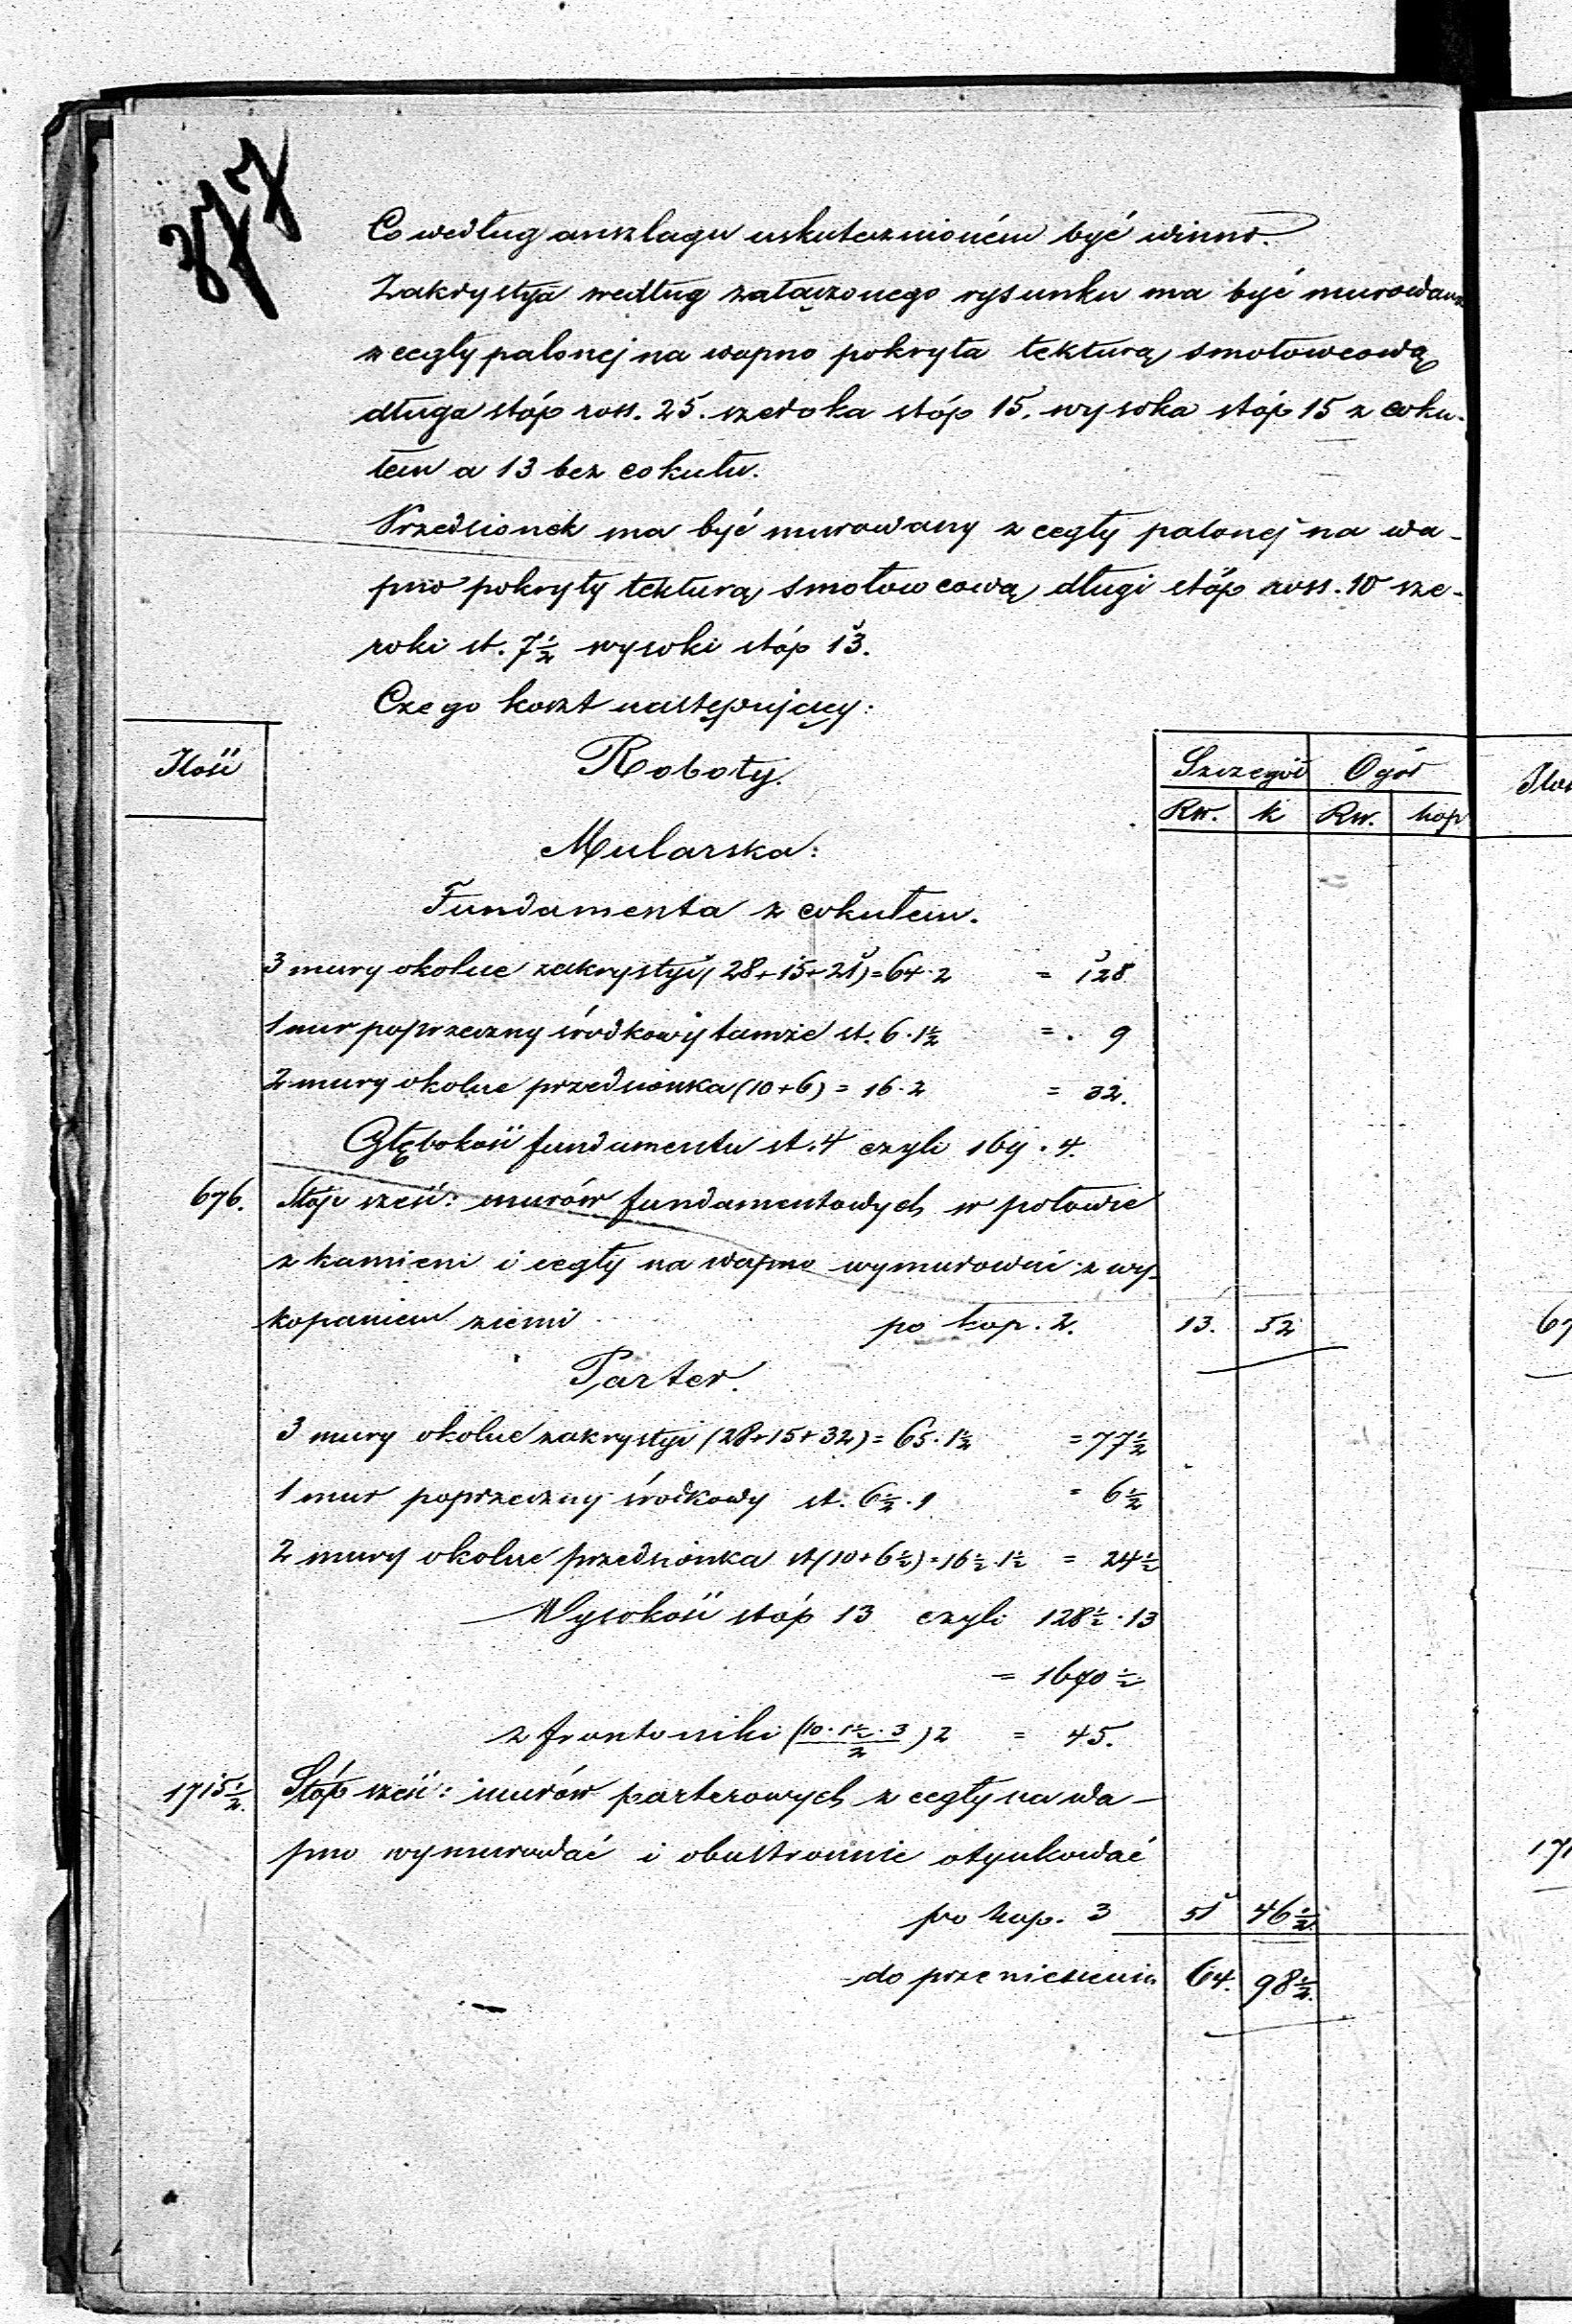 377
Co według anszlagu uskutecznionem być winno.
Zakrystya według załączonego rysunku ma być murowana
z cegły palonej na wapno pokryta tekturą smołowcową
długa stóp ross. 25. szeroka stóp 15. wysoka stóp 15 z coku-
łem a 13 bez cokułu.
Przedsionek ma być murowany z cegły palonej na wa-
pno pokryty tekturą smołowcową długi stóp ross. 10 sze-
roki st. 7½ wysoki stóp 13.
Czego koszt następujący:
Ilość Roboty. Szczegół Ogół
Rs. k Rs. kop
Mularska:
Fundamenta z cokułem.
3 mury okolne zakrystyi (28+15+21)=64·2 = 128
1 mur poprzeczny środkowy tamże st. 6·1½ = 9
2 mury okolne przedsionka (10+6) = 16·2 = 32.
Głębokość fundamentu st. 4 czyli 169·4.
676. Stóp sześć: murów fundamentowych w połowie
z kamieni i cegły na wapno wymurować z wy-
kopaniem ziemi po kop. 2. 13. 52 67
Parter.
3 mury okolne zakrystyi (28+15+32)=65·1½ =77½
1 mur poprzeczny środkowy st. 6½·1 = 6½
2 mury okolne przedsionka st(10+6½)=16½·1½ = 24½
Wysokość stóp 13 czyli 128½·13
= 1670½
2 frontoniki (10·1½·3/2)2 = 45.
1715½. Stóp sześć: murów parterowych z cegły na wa-
pno wymurować i obustronnie otynkować 171
po kop. 3 51 46½
do przeniesienia 64. 98½.